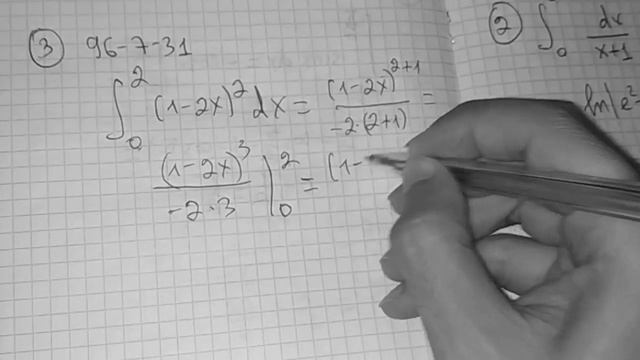 ③ 96-7-31
∫₀² (1-2x)² dx = (1-2x)²⁺¹ / -2·(2+1) =
(1-2x)³ / -2·3 |₀² = (1-
② ∫₀ dx / x+1
ln|e²-